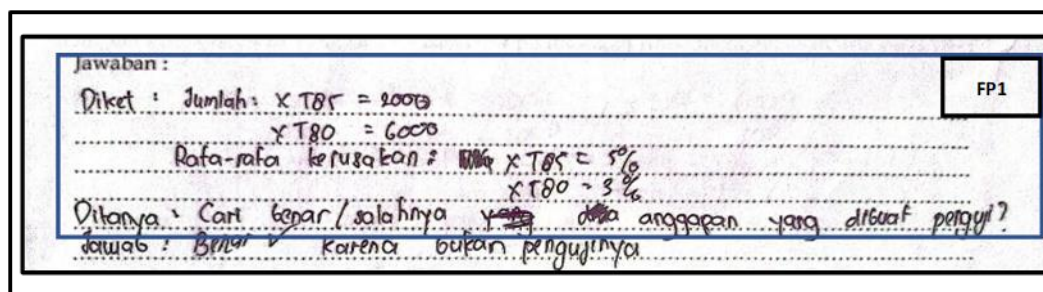 Jawaban :
FP1
Diket : Jumlah : XT85 = 2000
XT80 = 6000
Rata-rata kerusakan : XT85 = 5%
XT80 = 3%
Ditanya : Cari benar/salahnya anggapan yang dibuat penguji?
Jawab : Benar karena bukan pengujinya